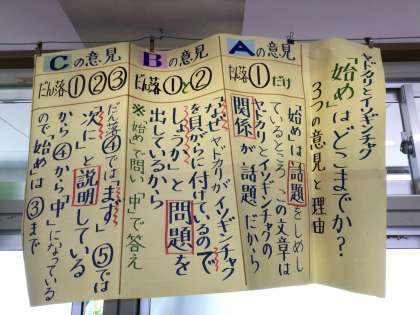 ヤドカリとイソギンチャク
「始め」はどこまでか？
３つの意見と理由
Aの意見
だん落①だけ
「始め」は話題をしめし
ているところ。この文章は
ヤドカリとイソギンチャクの
関係が話題だから
Bの意見
だん落①と②
なぜヤドカリがイソギンチャク
を貝がらに付けているので
しょうか」と問題を
出しているから
※始めで問い 中で答え
Cの意見
だん落①②③
だん落④では「まず」⑤では
「次に」と説明している
から④から「中」になっている
ので「始め」は③まで